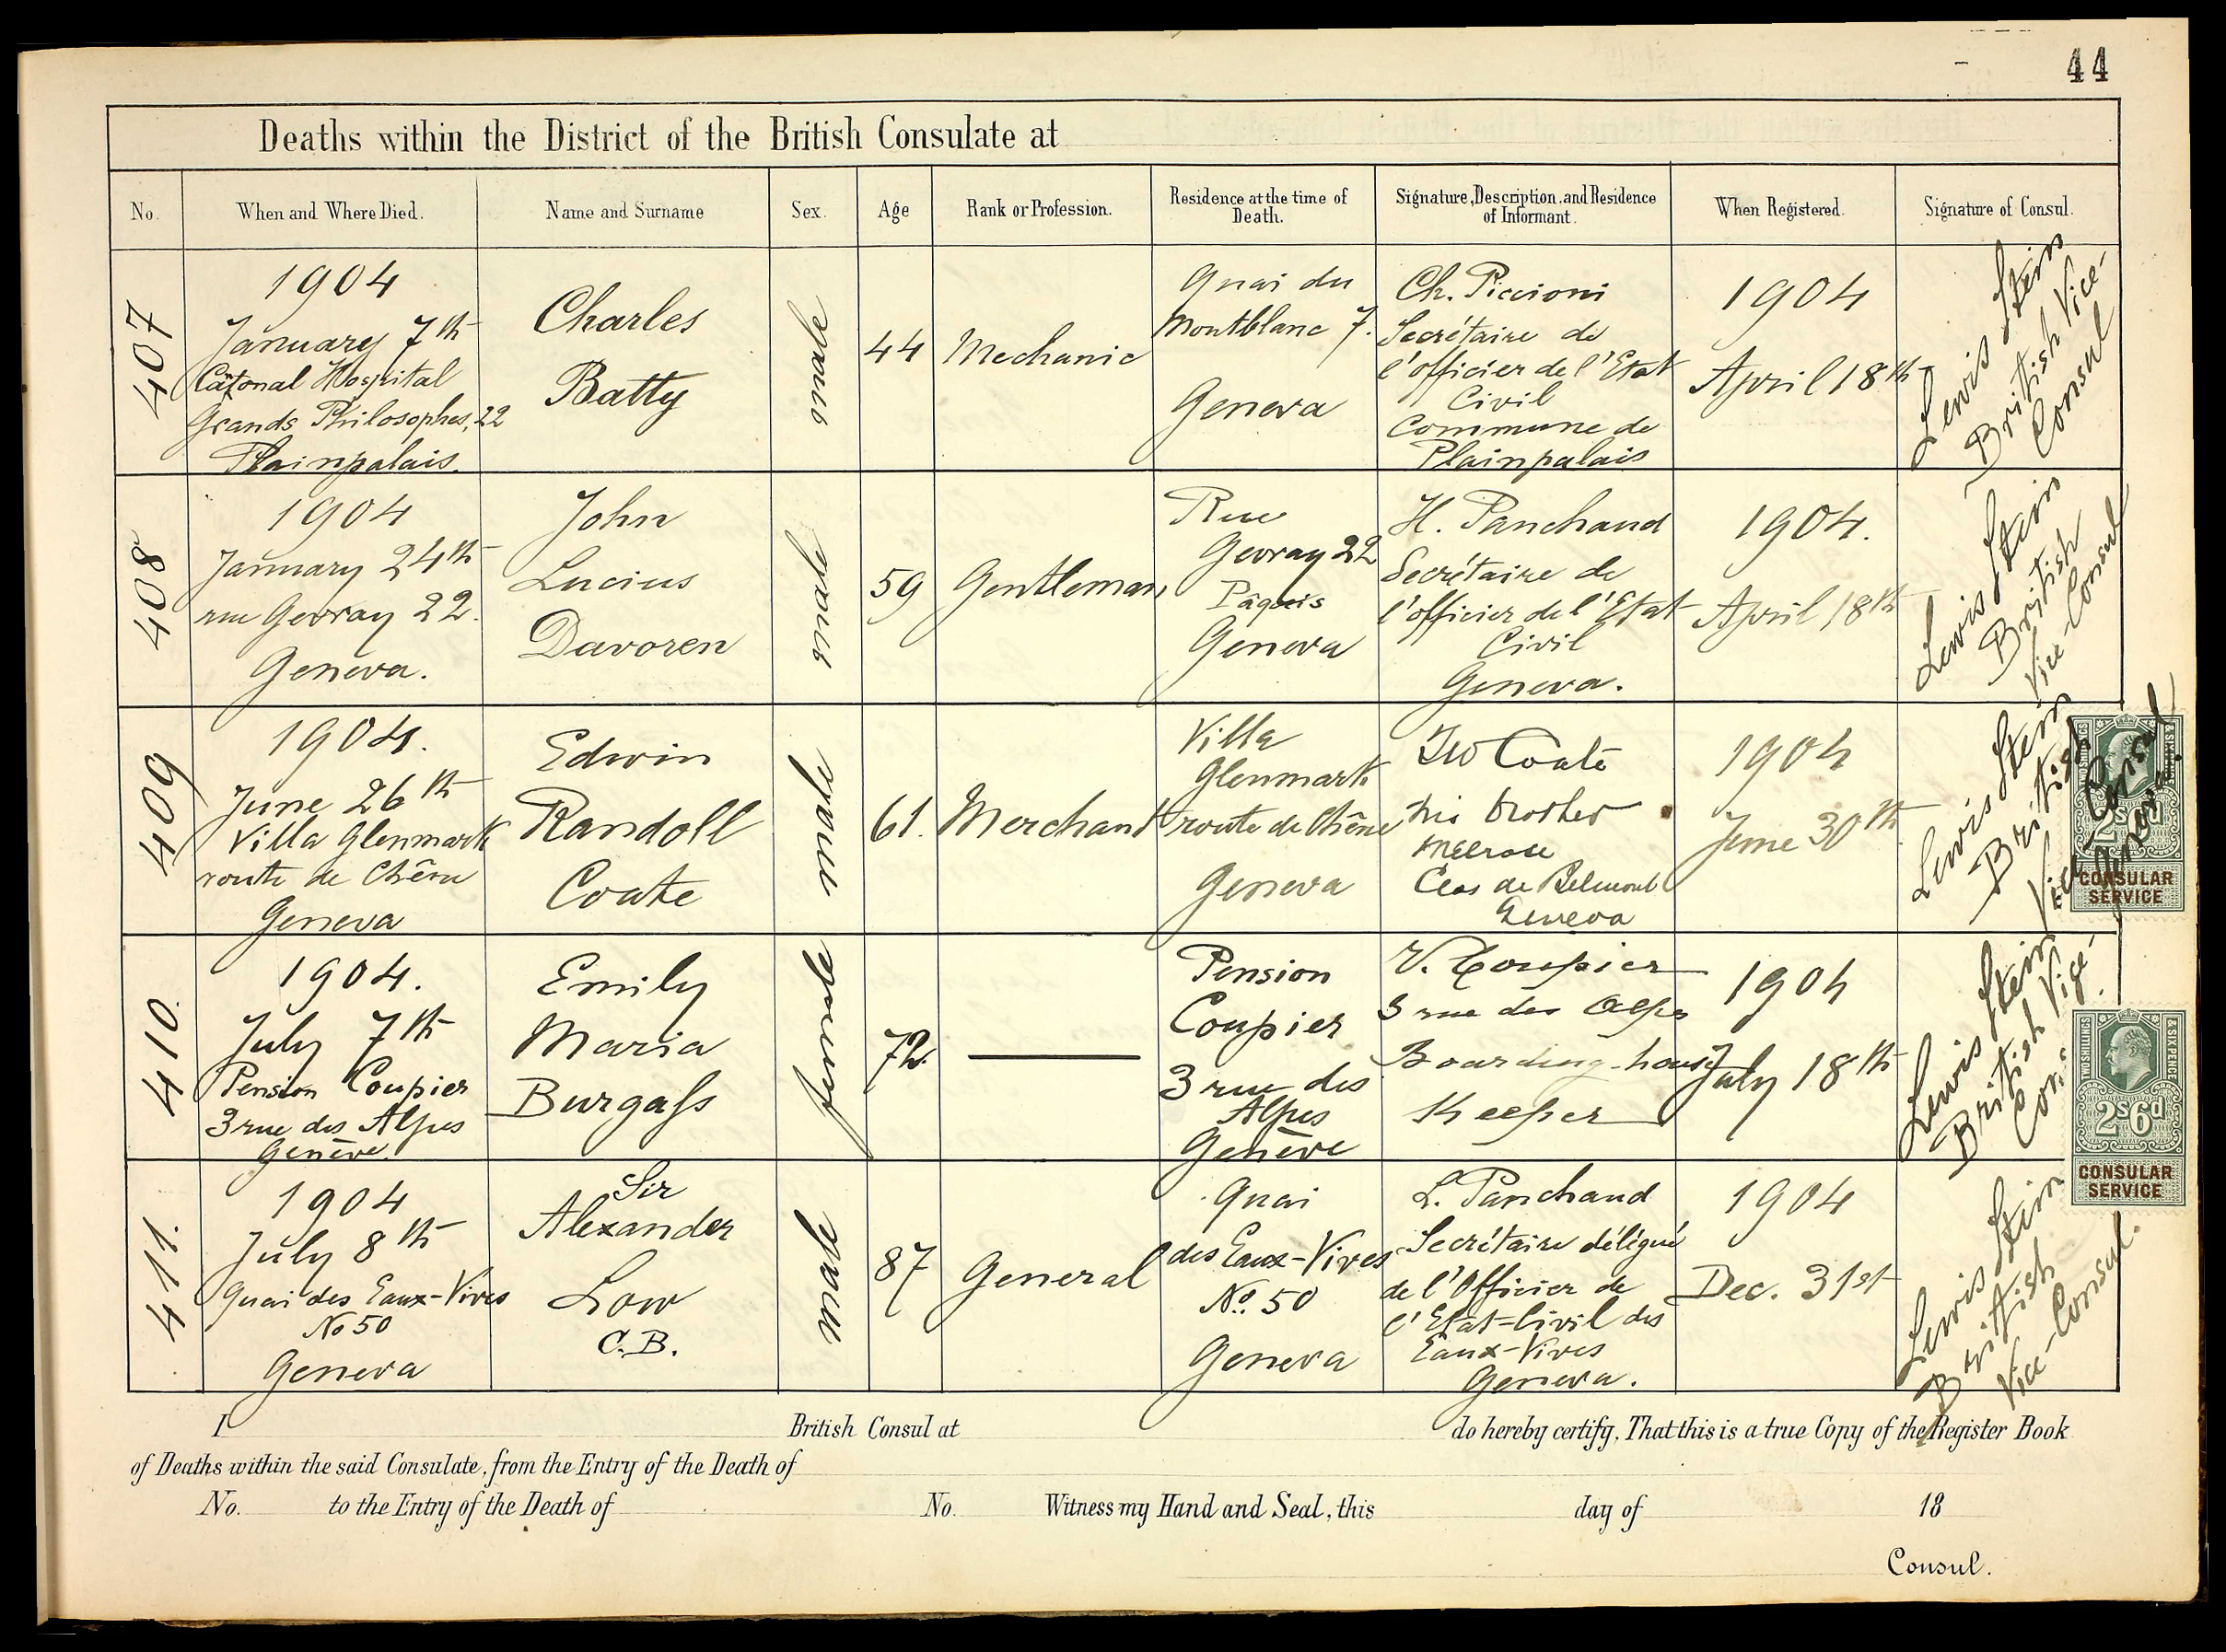 44
Deaths within the District of the British Consulate at
No.
When and Where Died.
Name and Surname
Sex.
Age
Rank or Profession.
Residence at the time of
Death.
Signature, Description, and Residence
of Informant.
When Registered.
Signature of Consul.
407
1904
January 7th
Cätonal Hospital
Grands Philosophes, 22
Plainpalais.
Charles
Batty
male
44
Mechanic
Quai du
Montblanc 7.
Geneva
Ch. Piccioni
Secrétaire de
l'officier de l'Etat
Civil
Commune de
Plainpalais
1904
April 18th
Lewis Stein
British Vice-
Consul
408
1904
January 24th
rue Gevray 22.
Geneva.
John
Lucius
Davoren
male
59
Gentleman
Rue
Gevray 22
Pâquis
Geneva
H. Panchaud
Secrétaire de
l'officier de l'Etat
Civil
Geneva.
1904.
April 18th
Lewis Stein
British
Vice-Consul
409
1904.
June 26th
Villa Glenmark
route de Chêne
Geneva
Edwin
Randoll
Coate
male
61.
Merchant
Villa
Glenmark
route de Chêne
Geneva
Coate
his brother
Melrose
Clos de Belmont
Geneva
1904
June 30th
Lewis Stein
British
Vice Consul
Geneva.
TWO SHILLINGS
& SIX PENCE
2s6d
CONSULAR
SERVICE
410.
1904.
July 7th
Pension Coupier
3 rue des Alpes
Genève.
Emily
Maria
Burgass
female
72.
Pension
Coupier
3 rue des
Alpes
Genève
V. Coupier
3 rue des Alpes
Boarding-house
Keeper
1904
July 18th
Lewis Stein
British Vice-
Con:
TWO SHILLINGS
& SIX PENCE
2s6d
CONSULAR
SERVICE
411.
1904
July 8th
Quai des Eaux-Vives
No 50
Geneva
Sir
Alexander
Low
C.B.
male
87
General
Quai
des Eaux-Vives
No. 50
Geneva
L. Panchaud
Secrétaire délégué
de l'Officier de
l'Etat-Civil des
Eaux-Vives
Geneva.
1904
Dec. 31st
Lewis Stein
British
Vice-Consul.
I British Consul at do hereby certify, That this is a true Copy of the Register Book
of Deaths within the said Consulate, from the Entry of the Death of
No. to the Entry of the Death of No. Witness my Hand and Seal, this day of 18
Consul.